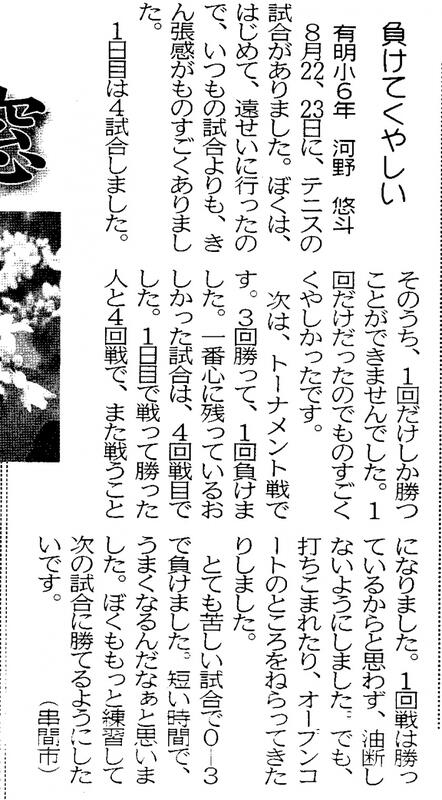 負けてくやしい
有明小６年　河野　悠斗
８月22、23日に、テニスの
試合がありました。ぼくは、
はじめて、遠せいに行ったの
で、いつもの試合よりも、き
ん張感がものすごくありまし
た。
１日目は４試合しました。
そのうち、１回だけしか勝つ
ことができませんでした。１
回だけだったのでものすごく
くやしかったです。
次は、トーナメント戦で
す。３回勝って、１回負けま
した。一番心に残っているお
しかった試合は、４回戦目で
した。１日目で戦って勝った
人と４回戦で、また戦うこと
になりました。１回戦は勝っ
ているからと思わず、油断し
ないようにしました。でも、
打ちこまれたり、オープンコ
ートのところをねらってきた
りしました。
とても苦しい試合で０―３
で負けました。短い時間で、
うまくなるんだなぁと思いま
した。ぼくももっと練習して
次の試合に勝てるようにした
いです。
（串間市）
窓